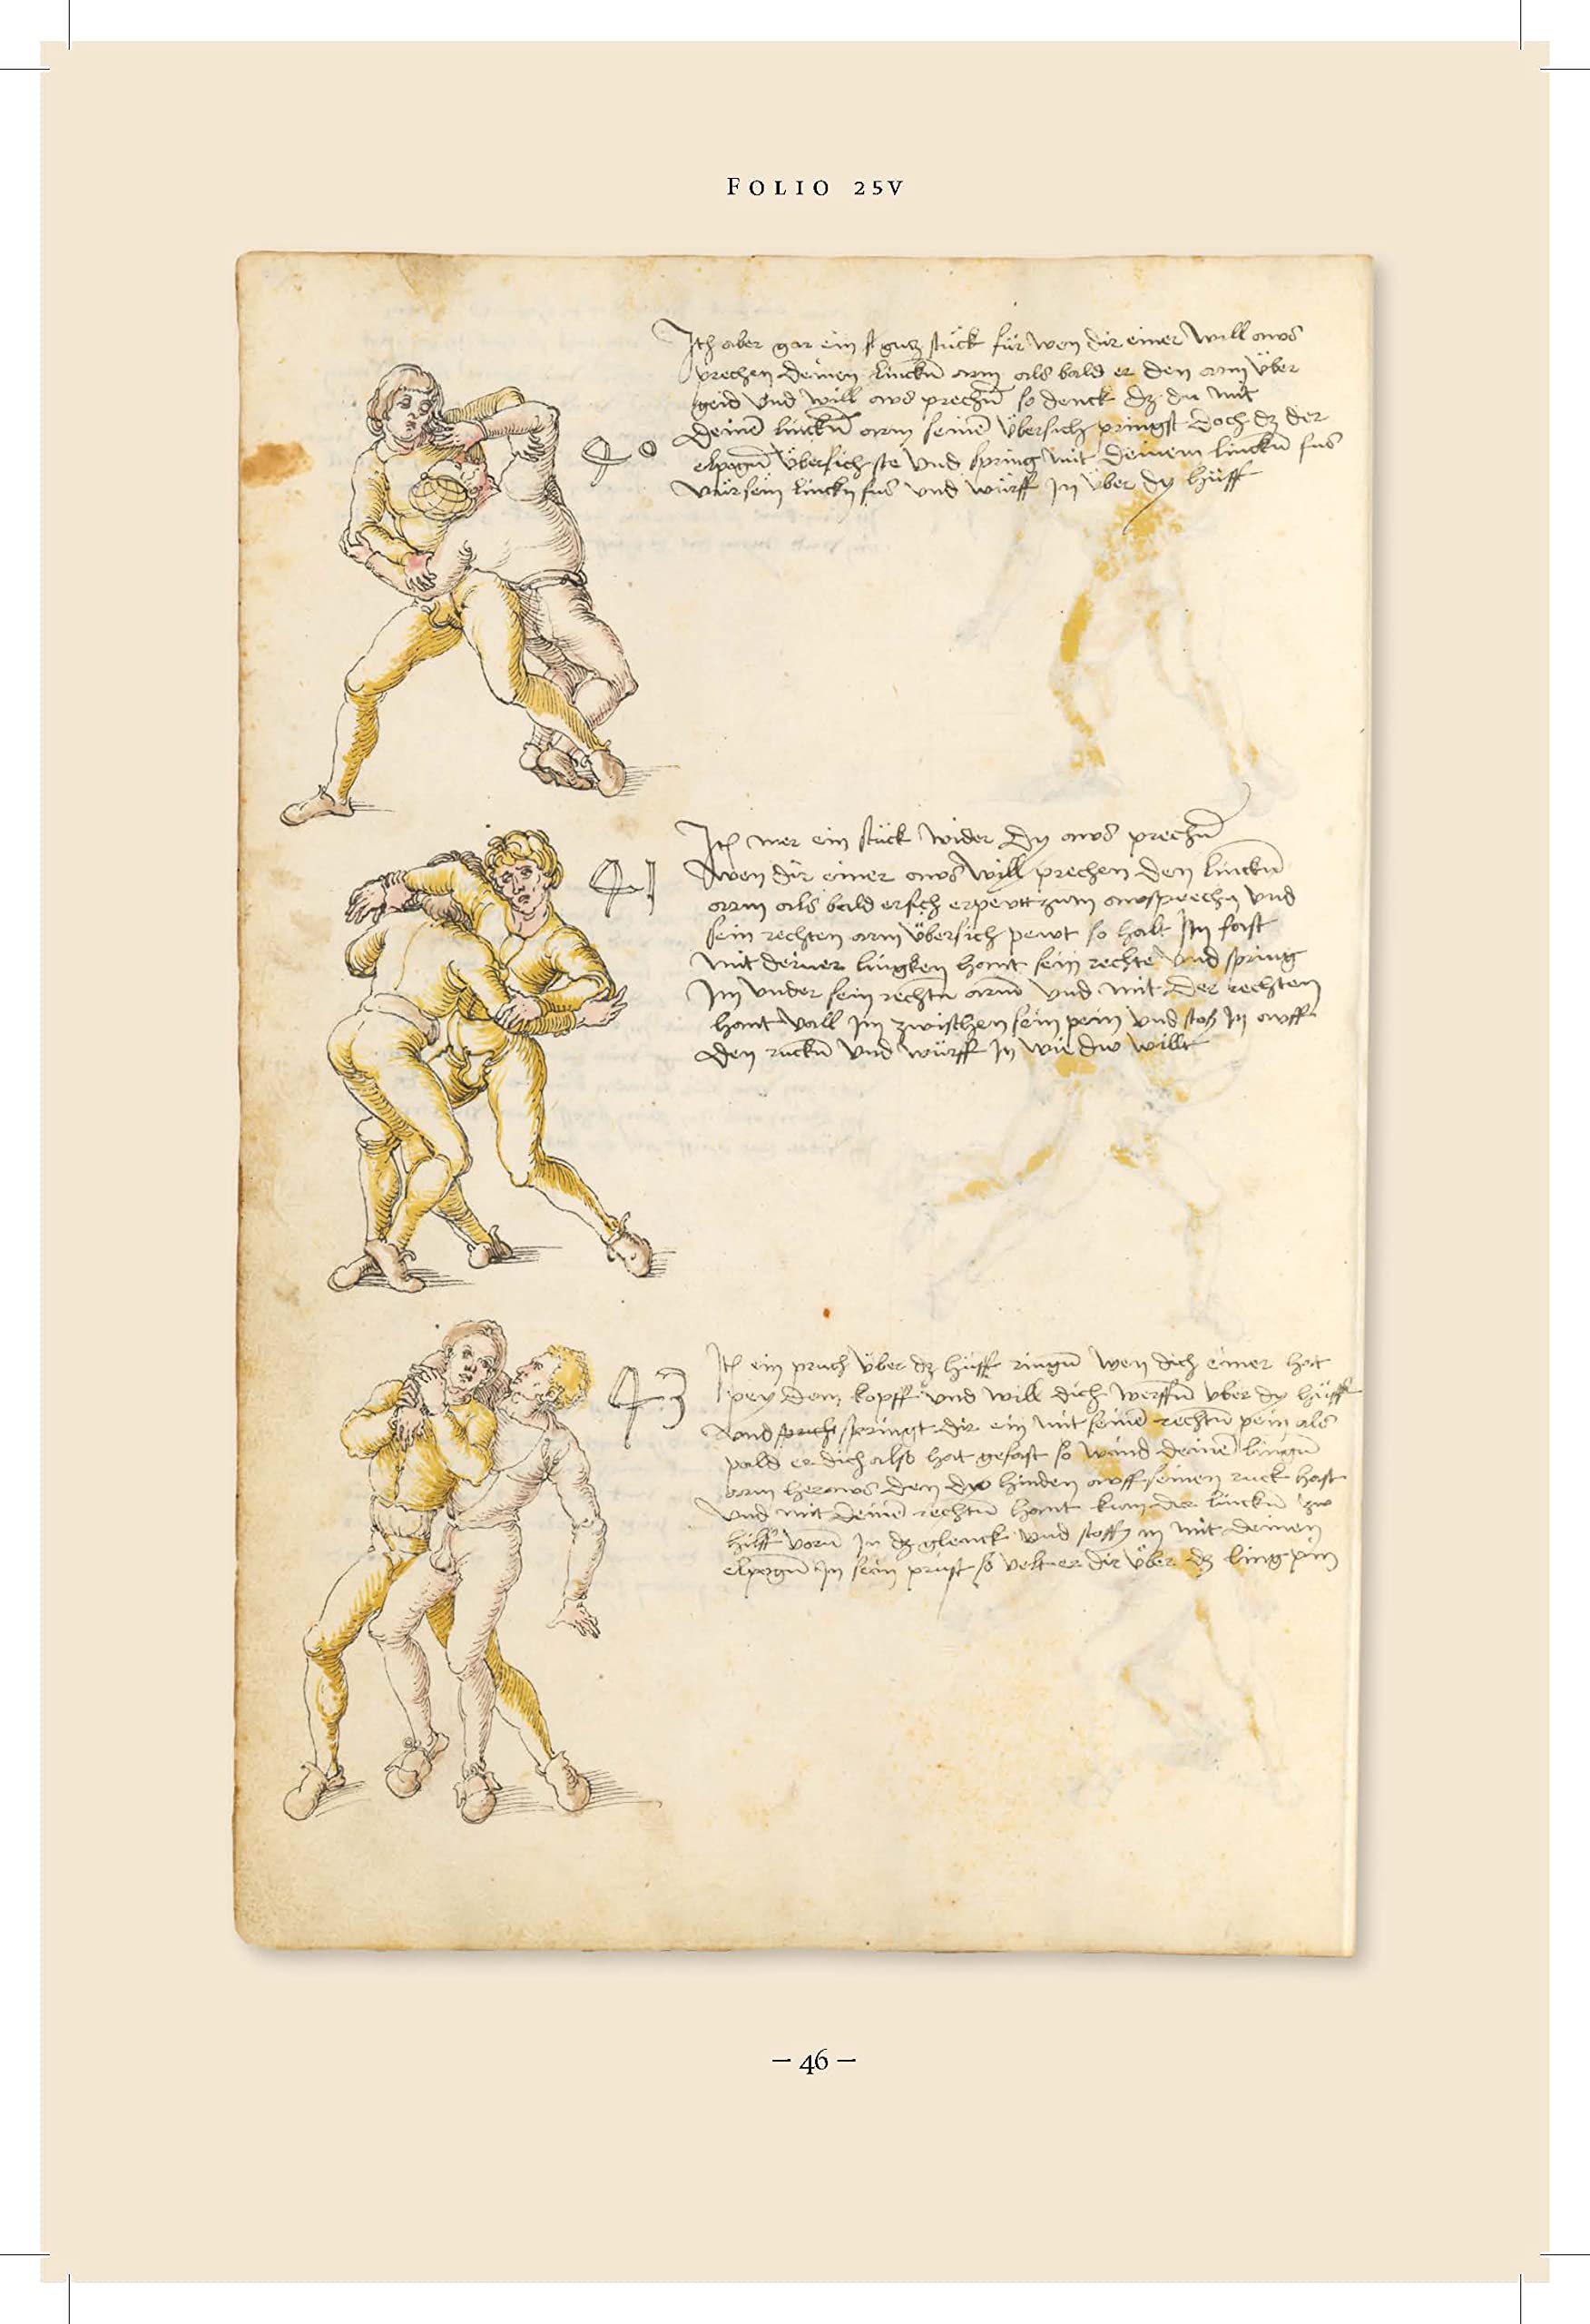 FOLIO 25V
Itch aber gar ein gucz stück für wen dir einer will aws
prechen deinen linckn̄ arm als bald er den arm über
geid vnd will aws prechn̄ so denck dz du mit
deinē linckn̄ arm seinē übersich pringst doch dz der
elpogn̄ übersich ste vnd spring mit deinem linckn̄ fus
vür sein linckn fus vnd würff in über dy hüff
40
Itch mer ein stück wider dy aws prechn̄
wen dir einer aws will prechen den linckn̄
arm als bald er sich erpeutt zum awsprechn vnd
sein rechten arm übersich pewt so halt im fast
mit deiner lingken hant sein rechte vnd spring
im vnder sein rechtn̄ arm vnd mit der rechten
hant vall im zwischen sein pein vnd stos in auff
den ruckn̄ vnd würff in wie dw willt
41
Itch ein pruch über dz hüff ringn̄ wen dich einer hat
pey dem kopff vnd will dich werffn̄ vber dy hüff
vnd springt dir ein mit seinē rechtn̄ pein als
pald er dich also hat gefast so wind deinē lingn̄
arm heraws den dw hinden auff seinen ruck hast
vnd mit deinē rechtn̄ hant kum der linckn̄ zw
hilff vorn̄ in dz glenck vnd stoss in mit deinen
elpogn̄ in sein prust so velt er dir über dz ling pin
43
– 46 –